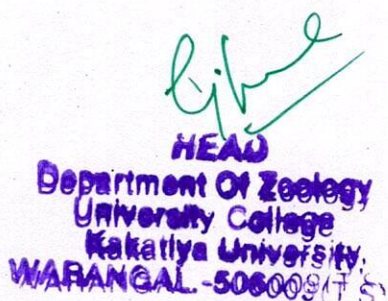 HEAD
Department Of Zoology
University College
Kakatiya University,
WARANGAL.-506009